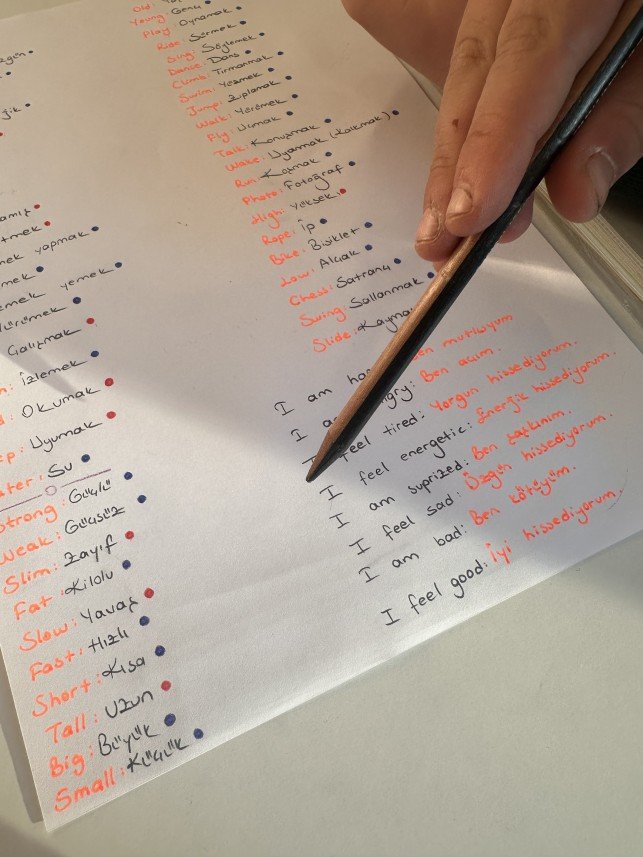 yapmak
yemek
Çalışmak
İzlemek
Okumak
Uyumak
Su
Strong: Güçlü
Weak: Güçsüz
Slim: Zayıf
Fat: Kilolu
Slow: Yavaş
Fast: Hızlı
Short: Kısa
Tall: Uzun
Big: Büyük
Small: Küçük
Old:
Young: Genç
Play: Oynamak
Ride: Sürmek
Sing: Söylemek
Dance: Dans
Climb: Tırmanmak
Swim: Yüzmek
Jump: Zıplamak
Walk: Yürümek
Fly: Uçmak
Talk: Konuşmak
Wake: Uyanmak (kalkmak)
Run: Koşmak
Photo: Fotoğraf
High: Yüksek
Rope: İp
Bike: Bisiklet
Low: Alçak
Chess: Satranç
Swing: Sallanmak
Slide: Kayma
I am ha en mutluyum
I a ngry: Ben açım.
I feel tired: Yorgun hissediyorum.
I feel energetic: Energik hissediyorum.
I am suprized: Ben şaşkınım.
I feel sad: Üzgün hissediyorum.
I am bad: Ben kötüyüm.
I feel good: İyi hissediyorum.